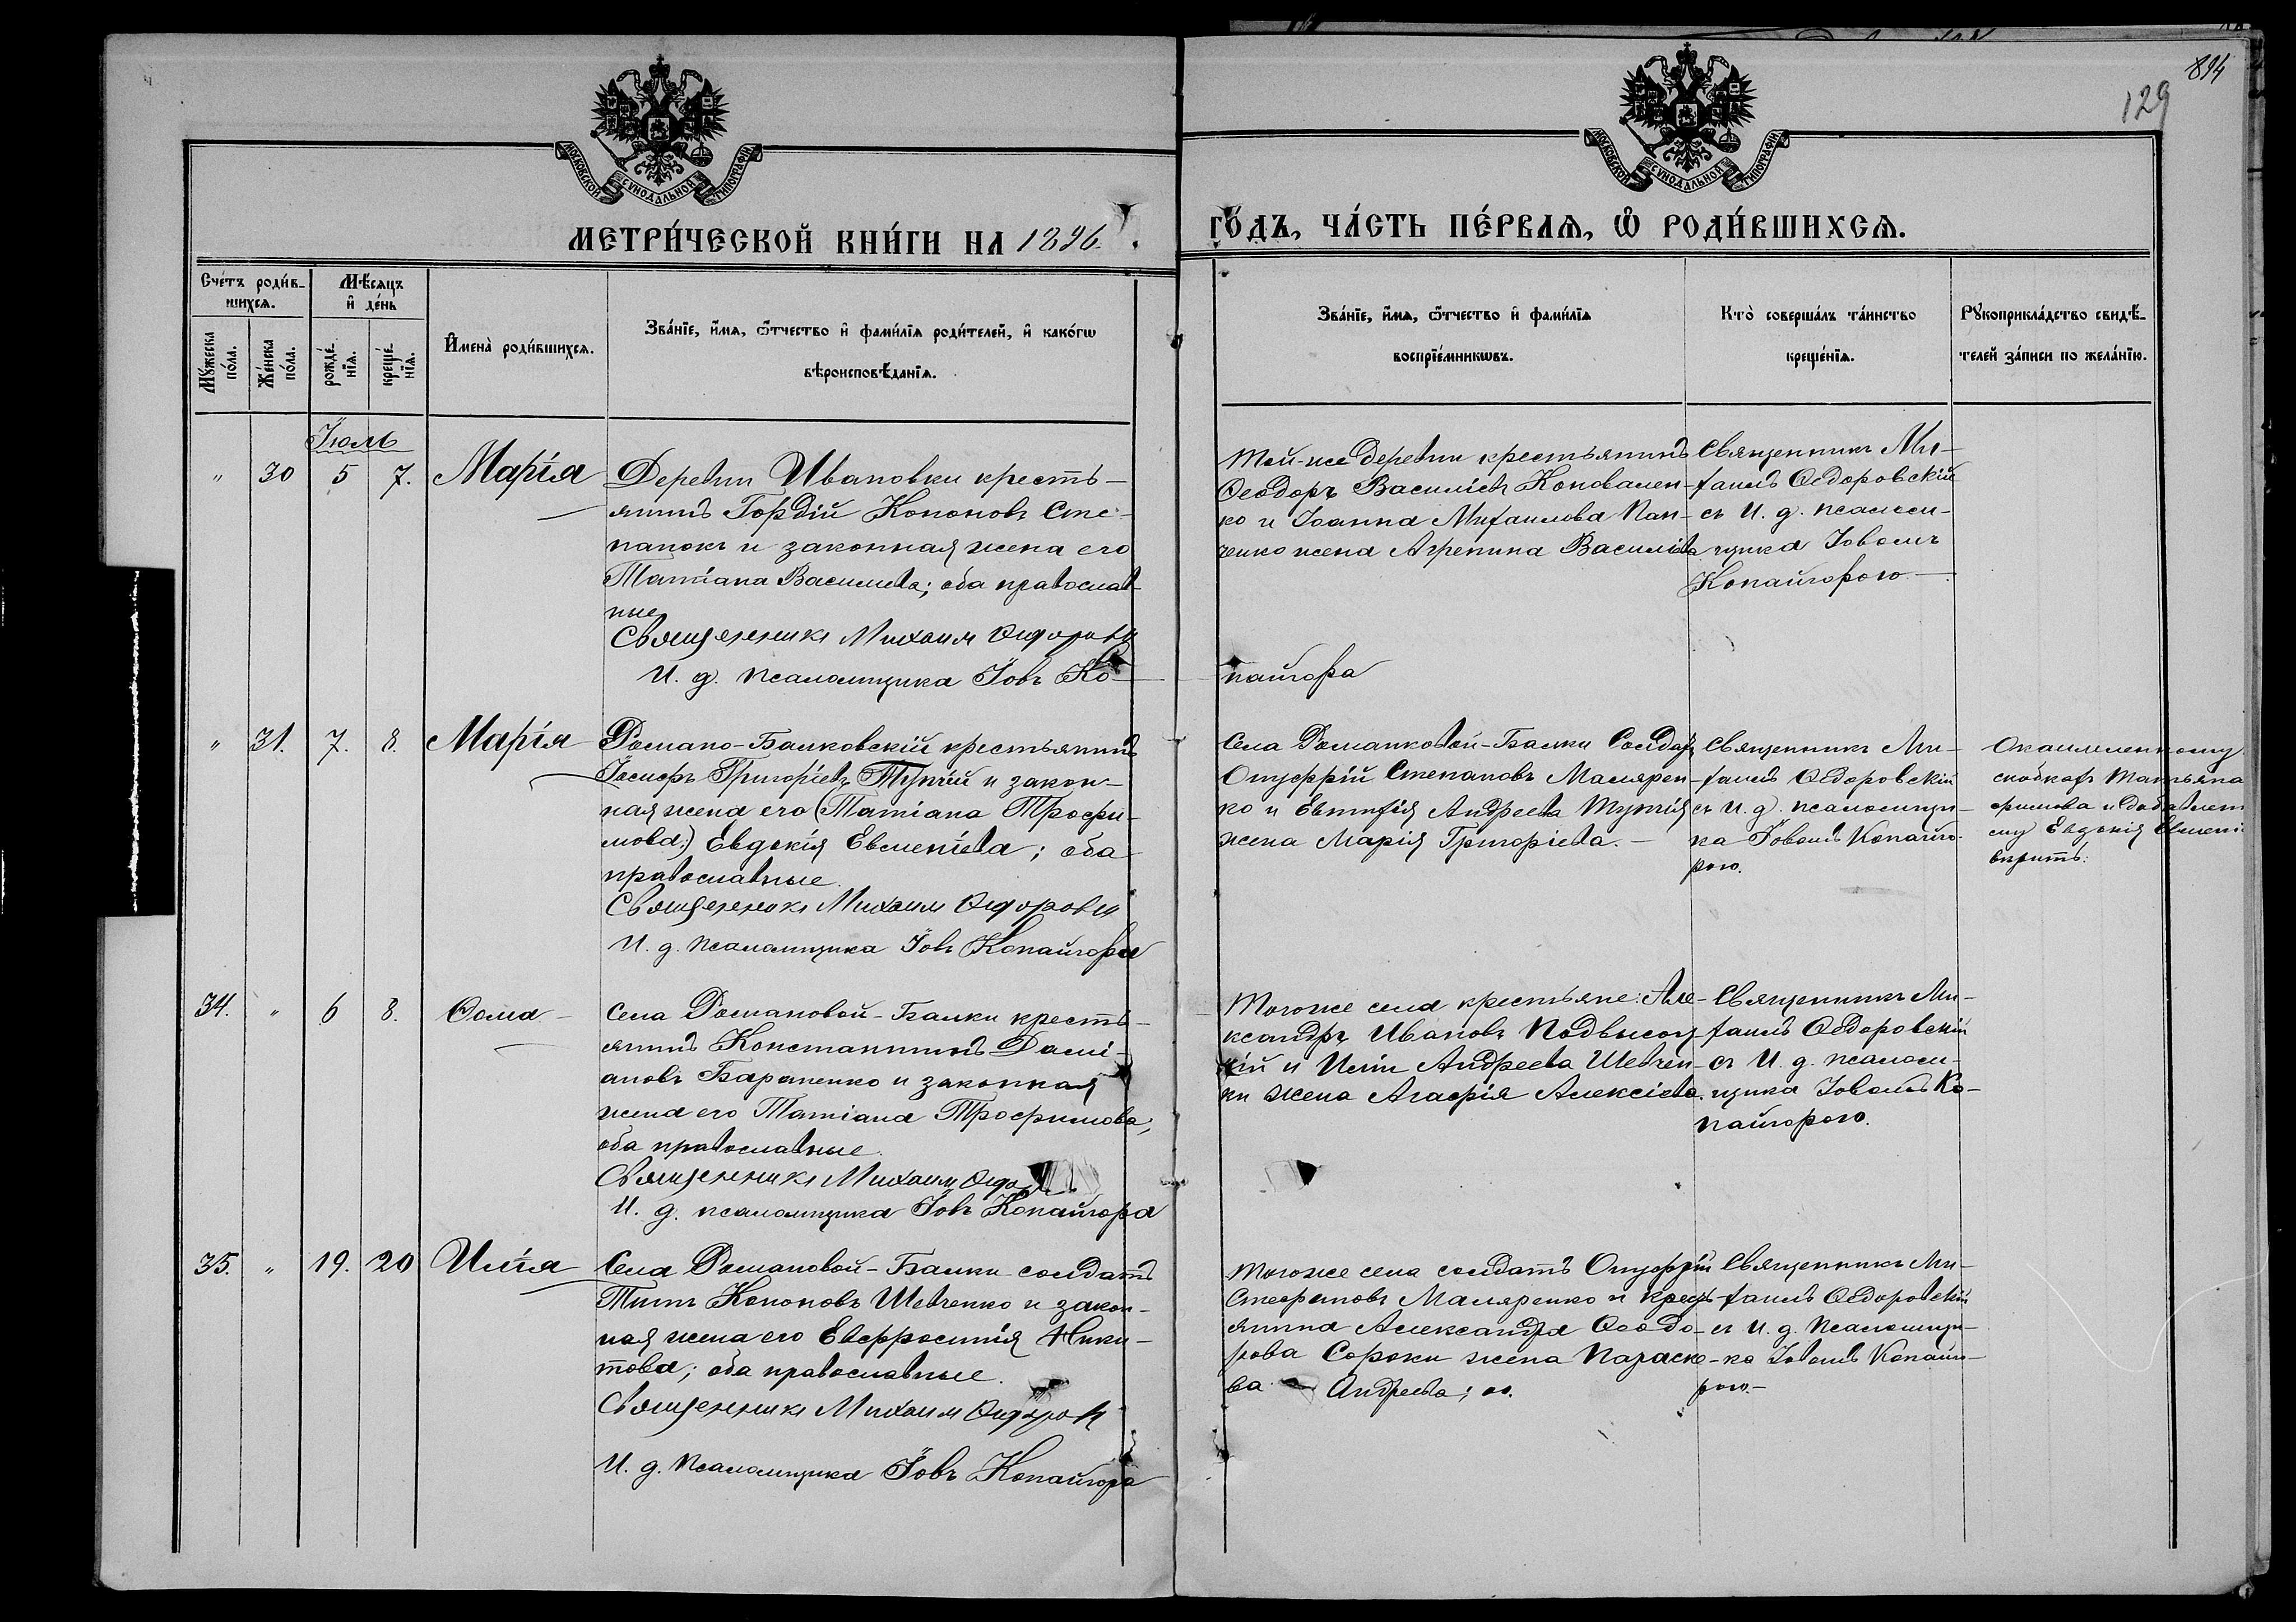 894
129
МОСКОВСКОЙ СѴНОДАЛЬНОЙ ТИПОГРАФІИ
МОСКОВСКОЙ СѴНОДАЛЬНОЙ ТИПОГРАФІИ
МЕТРИ́ЧЕСКОЙ КНИ́ГИ НА 1896.
ГО́ДЪ, ЧА́СТЬ ПЕ́РВАѦ, Ѡ҆ РОДИ́ВШИХСѦ.
Сче́тъ роди́в-
шихсѧ.
Мꙋ́жеска по́ла.
Же́нска по́ла.
Мѣ́сѧцъ
и҆ де́нь
рожде́-
нїѧ.
креще́-
нїѧ.
И҆мена̀ роди́вшихсѧ.
Зва́нїе, и҆́мѧ, ѻ҆́тчество и҆ фами́лїѧ роди́телей, и҆ како́гѡ
вѣроисповѣ́данїѧ.
Зва́нїе, и҆́мѧ, ѻ҆́тчество и҆ фами́лїѧ
воспрїе́мникѡвъ.
Кто̀ соверша́лъ та́инство
креще́нїѧ.
Рꙋкоприкла́дство свидѣ́-
телей за́писи по жела́нїю.
Іюль
" 30 5 7. Марія
Деревни Ивановки кресть-
янинъ Гордій Кононовъ Сте-
панокъ и законная жена его
Татіана Василіева; оба православ-
ные
Священникъ Михаил Ѳедоровск
И. д. псаломщика Іовъ Ко-
пайгора
Той-же деревни крестьянинъ
Ѳеодоръ Василіевъ Коновален-
ко и Іоанна Михаилова Пан-
ченко жена Агрепина Василіева
Священникъ Ми-
хаилъ Ѳедоровскій
съ И. д. псалом-
щика Іовомъ
Копайгорою
" 31. 7. 8. Марія
Романо-Балковскій крестьянинъ
Іосифъ Григоріевъ Тупчій и закон-
ная жена его (Татіана Трофи-
мова) Евдокія Евсменіева; оба
православные
Священникъ Михаил Ѳедоровск
И. д. псаломщика Іовъ Копайгора
Села Романковой-Балки Солдатъ
Онуфрій Степановъ Маляренко-
ко и Евтихія Андреева Тупчія
жена Марія Григоріева.
Священникъ Ми-
хаилъ Ѳедоровскій
съ И. д. псаломщи-
ка Іовомъ Копайго-
рою.
скобкахъ Татьяна
фимова и добавлен
му Евдокія Евмені
вѣрить.
34. " 6 8. Ѳома
Села Романовой-Балки кресть-
янинъ Константинъ Дамі-
ановъ Бараненко и законная
жена его Татіана Трофимова;
оба православные.
Священникъ Михаил Ѳедо
И. д. псаломщика Іовъ Копайгора
Тогоже села крестьяне: Але-
ксандръ Ивановъ Подвысоц-
кій и Иліи Андреева Шевчен-
ки жена Агафія Алексіева.
Священникъ Ми-
хаилъ Ѳедоровскій
съ И. д. псалом-
щика Іовомъ Ко-
пайгорою.
35. " 19. 20 Илія
Села Романовой-Балки солдатъ
Титъ Кононовъ Шевченко и закон-
ная жена его Евфросинія Ники-
това; оба православные.
Священникъ Михаил Ѳедоровск
И. д. псаломщика Іовъ Копайгора
Тогоже села солдатъ Онуфрій
Стефановъ Маляренко и кресть-
янина Александра Ѳеодо-
рова Сороки жена Параске-
ва Андреева;
Священникъ Ми-
хаилъ Ѳедоровскій
съ И. д. псаломщи-
ка Іовомъ Копайго-
рою